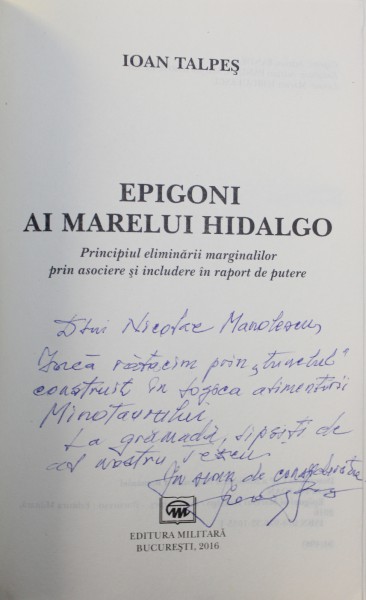 IOAN TALPEȘ
EPIGONI
AI MARELUI HIDALGO
Principiul eliminării marginalilor
prin asociere și includere în raport de putere
Dlui Nicolae Manolescu,
Încă rătăcim prin „tunelul"
construit în logica alimentării
Minotaurului.
La grămadă, lipsiți de
al nostru
În semn de considerație
EDITURA MILITARĂ
BUCUREȘTI, 2016